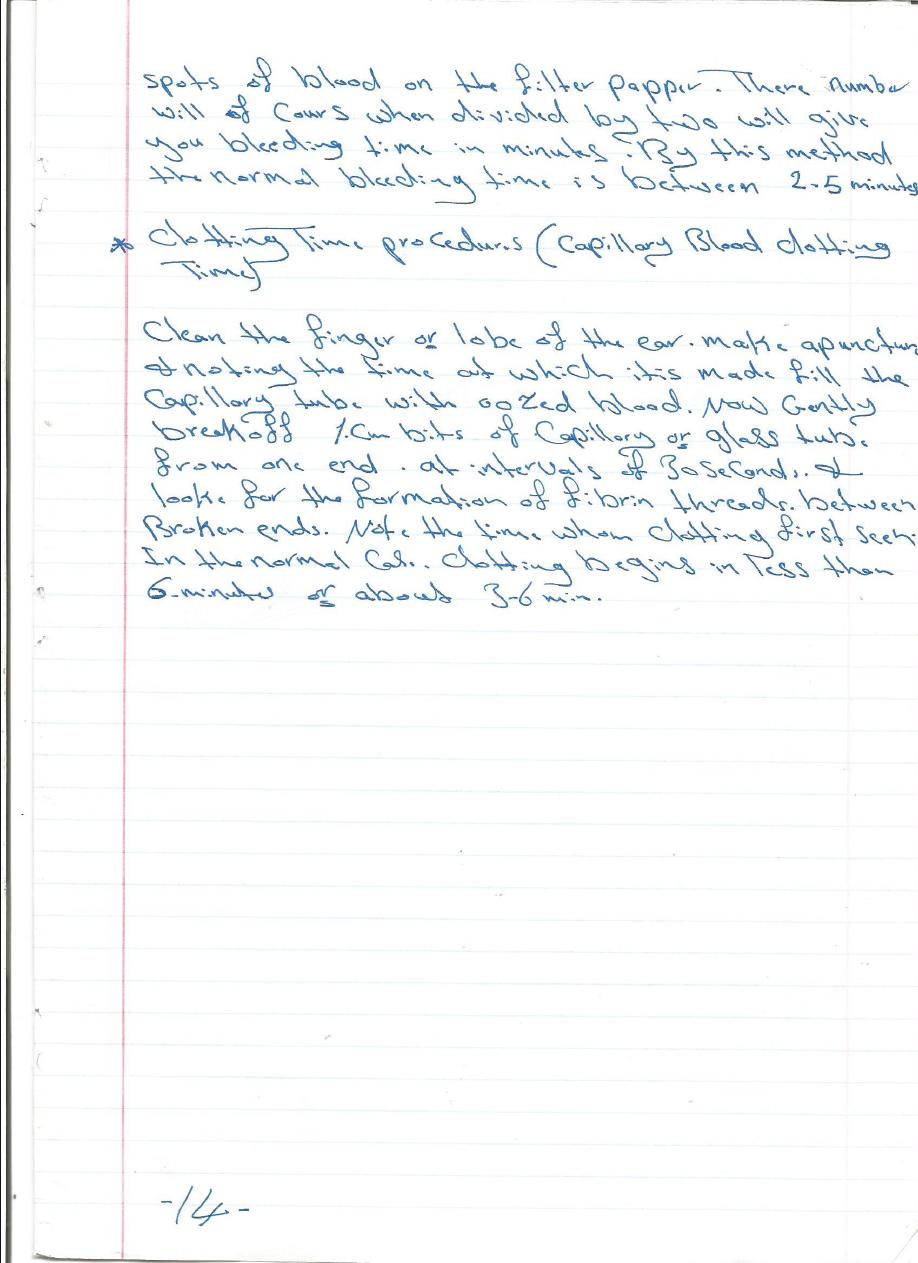 spots of blood on the filter papper. There number
will of Cours when divided by two will give
you bleeding time in minutes. By this method
the normal bleeding time is between 2-5 minutes
* Clotting Time procedures (Capillary Blood clotting
Time)
Clean the finger or lobe of the ear. make a punctur
& noting the time at which it is made fill the
Capillary tube with oozed blood. Now Gently
break off 1.Cm bits of Capillary or glass tube
from one end. at intervals of 30 Seconds. &
looke for the formation of fibrin threads. between
Broken ends. Note the time when clotting first seen.
In the normal Cas.. clotting begins in less than
6-minutes or about 3-6 min.
-14-